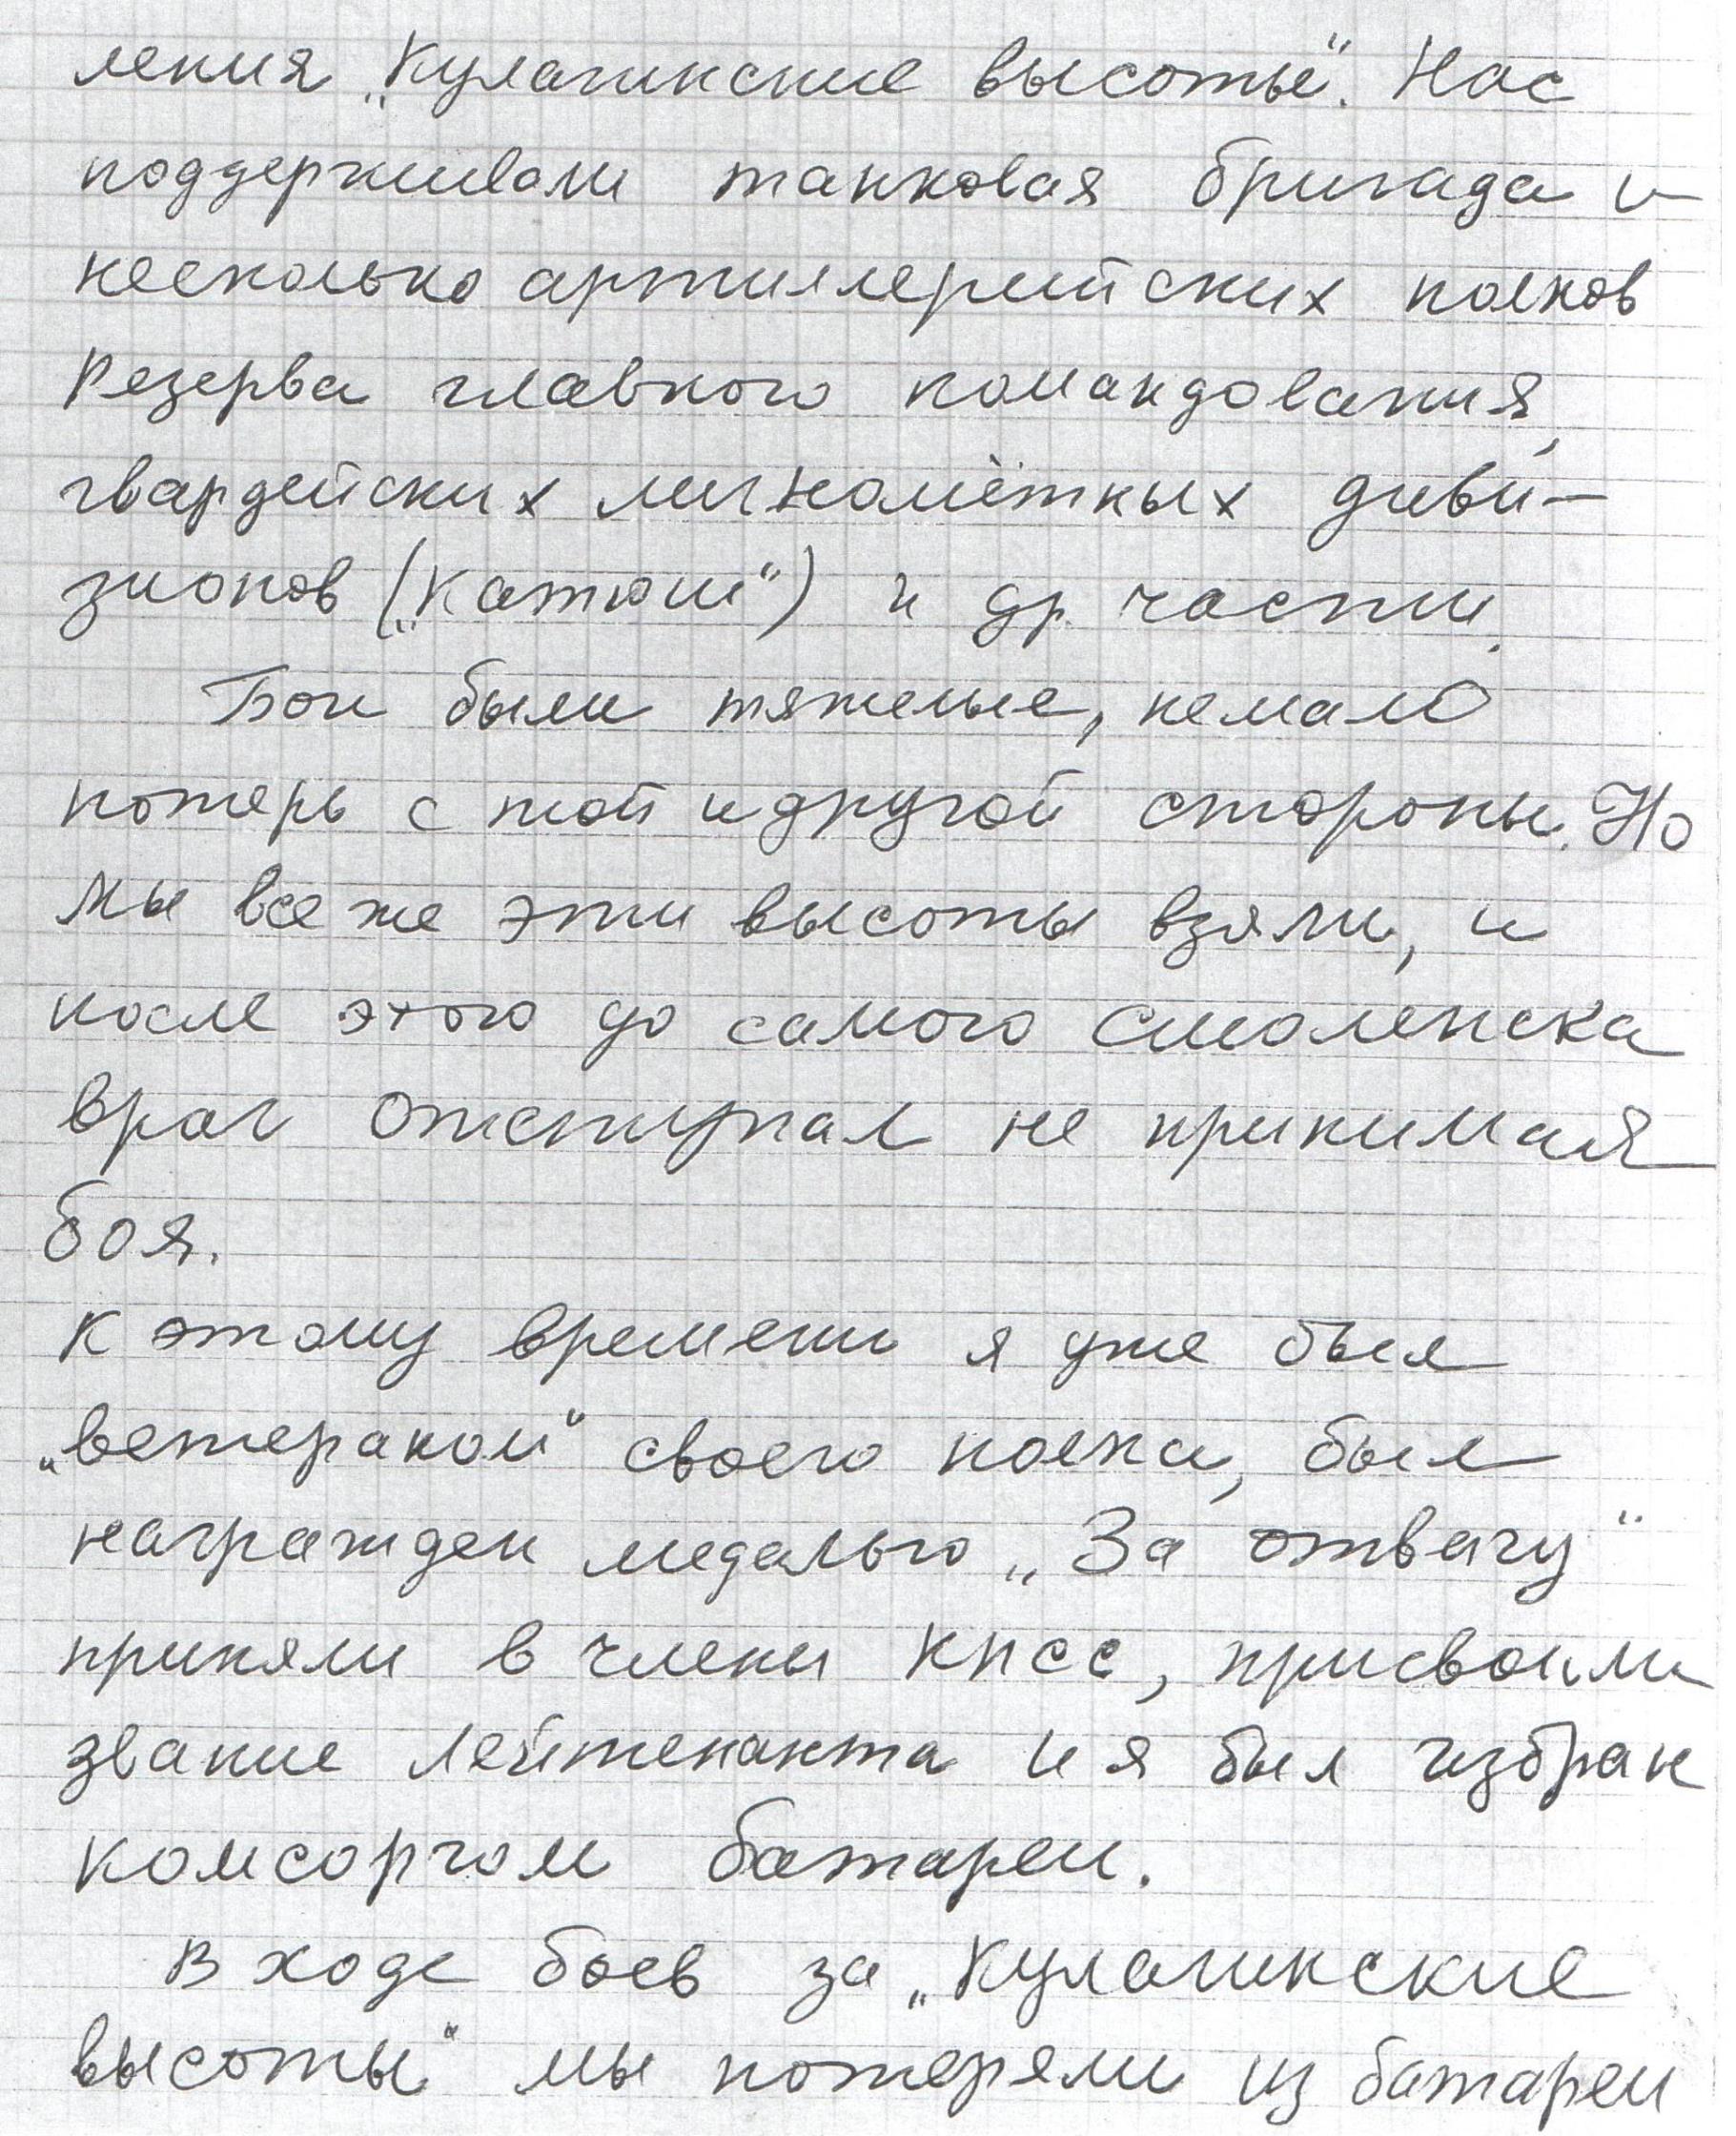 ления „Кулагинские высоты". Нас
поддерживали танковая бригада и
несколько артиллерийских полков
Резерва главного командования,
гвардейских миномётных диви-
зионов („Катюш") и др. части.
Бои были тяжелые, немало
потерь с той и другой стороны. Но
мы все же эти высоты взяли, и
после этого до самого Смоленска
враг отступал не принимая
боя.
К этому времени я уже был
„ветераном" своего полка, был
награжден медалью „За отвагу"
приняли в члены КПСС, присвоили
звание лейтенанта и я был избран
комсоргом батареи.
В ходе боев за „Кулагинские
высоты" мы потеряли из батареи